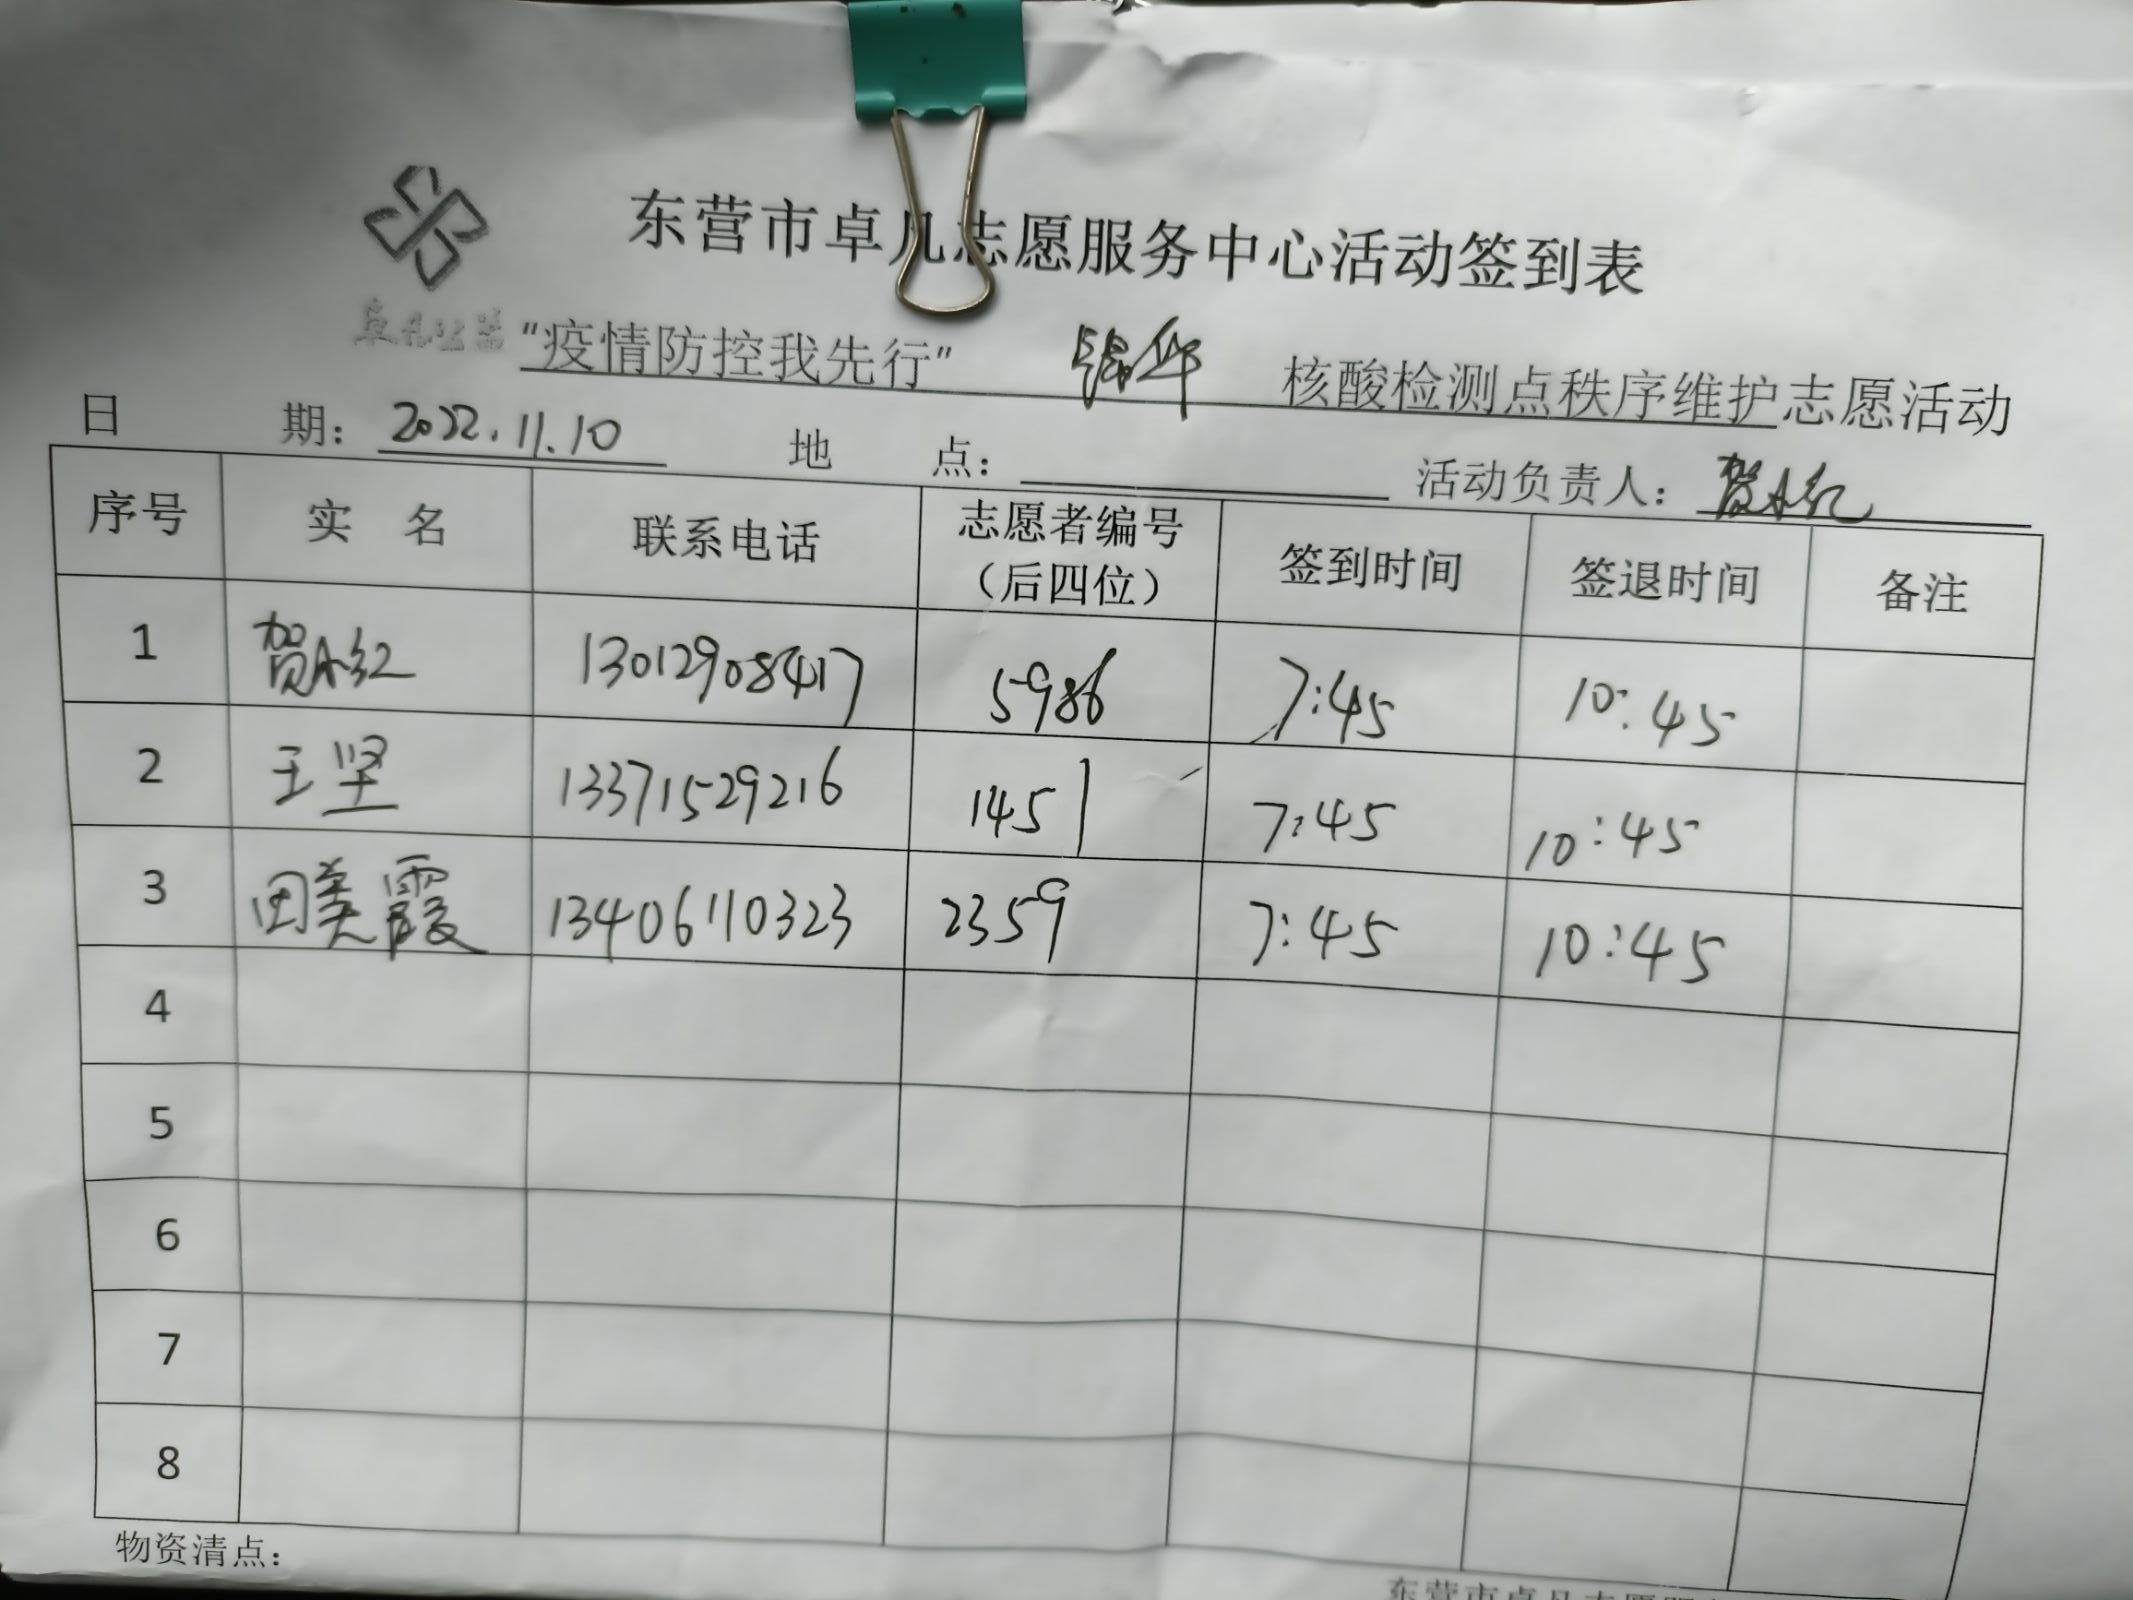 东营市卓凡志愿服务中心活动签到表
卓凡公益
“疫情防控我先行” 锦华 核酸检测点秩序维护志愿活动
日 期: 2022.11.10 地 点: 活动负责人: 贺小红
序号 实 名 联系电话 志愿者编号(后四位) 签到时间 签退时间 备注
1 贺小红 13012908417 5986 7:45 10:45
2 王坚 13371529216 1451 7:45 10:45
3 田美霞 13406110323 2359 7:45 10:45
4
5
6
7
8
物资清点:
东营市卓凡志愿服